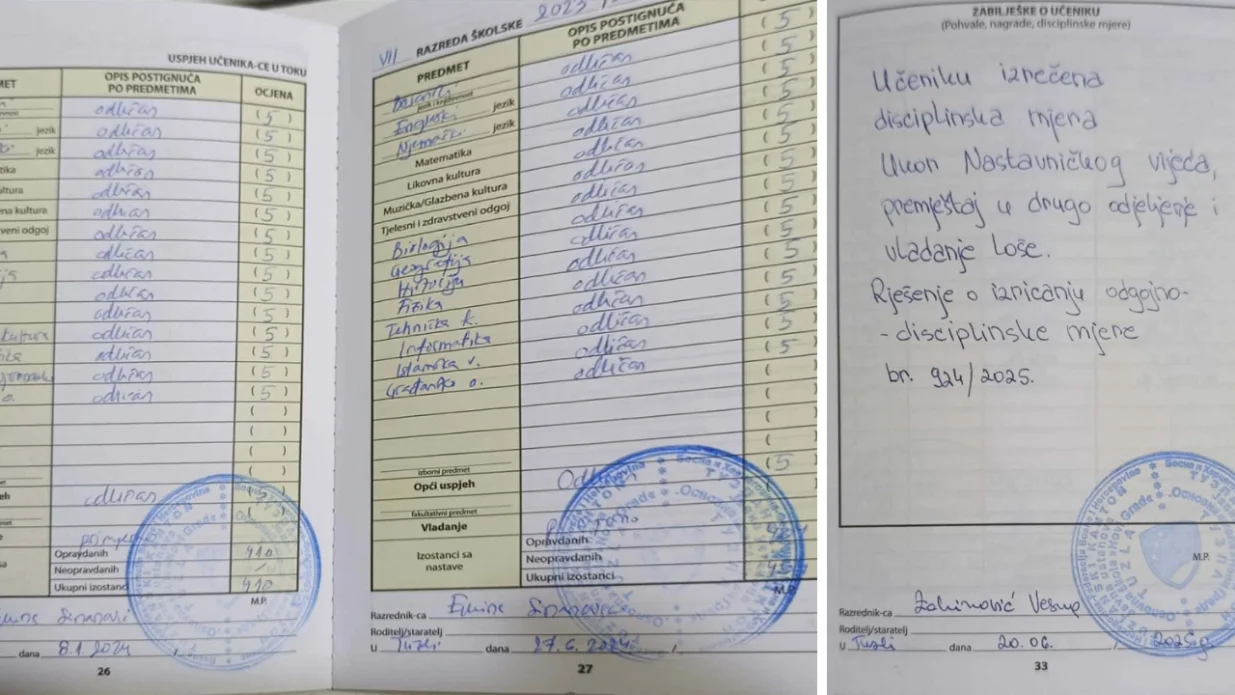 USPJEH UČENIKA-CE U TOKU
OPIS POSTIGNUĆA
PO PREDMETIMA
OCJENA
jezik
odličan (5)
odličan (5)
jezik odličan (5)
odličan (5)
odličan (5)
odličan (5)
odličan (5)
odličan (5)
odličan (5)
odličan (5)
odličan (5)
odličan (5)
odličan (5)
odličan (5)
odličan (5)
odličan
Opravdanih 410
Neopravdanih /
Ukupni izostanci 410
M.P.
dana 8.1.2024
26
VII RAZREDA ŠKOLSKE 2023
PREDMET
OPIS POSTIGNUĆA
PO PREDMETIMA
(5)
Bosanski jezik i književnost odličan (5)
Engleski jezik odličan (5)
Njemački jezik odličan (5)
Matematika odličan (5)
Likovna kultura odličan (5)
Muzička/Glazbena kultura odličan (5)
Tjelesni i zdravstveni odgoj odličan (5)
Biologija odličan (5)
Geografija odličan (5)
Historija odličan (5)
Fizika odličan (5)
Tehnička k. odličan (5)
Informatika odličan (5)
Islamska v. odličan (5)
Građansko o. odličan
izborni predmet
Opći uspjeh (5)
fakultativni predmet
Vladanje
Izostanci sa
nastave
Opravdanih
Neopravdanih
Ukupni izostanci
M.P.
Razrednik-ca Emine
Roditelj/staratelj
U Tuzli dana 27.6.2024
27
ZABILJEŠKE O UČENIKU
(Pohvale, nagrade, disciplinske mjere)
Učeniku izrečena
disciplinska mjera
Ukor Nastavničkog vijeća,
premještaj u drugo odjeljenje i
vladanje Loše.
Rješenje o izricanju odgojno-
-disciplinske mjere
br. 924/2025.
M.P.
Razrednik-ca
Roditelj/staratelj
U Tuzli dana 20.06. 2025.g
33